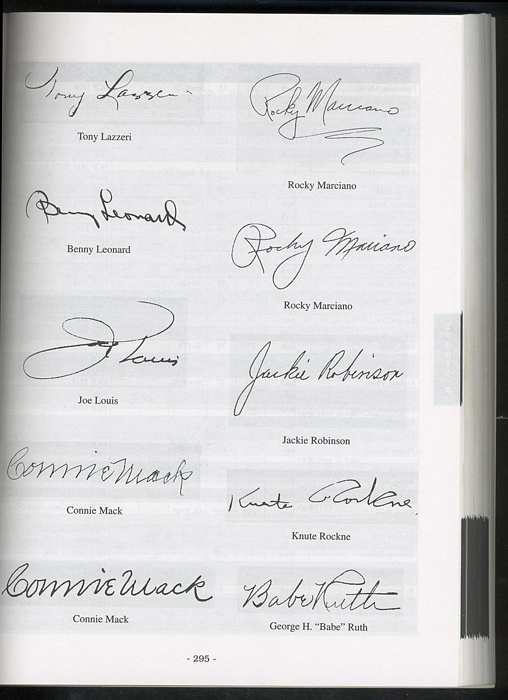 Tony Lazzeri
Tony Lazzeri
Benny Leonard
Benny Leonard
Joe Louis
Joe Louis
Connie Mack
Connie Mack
Connie Mack
Connie Mack
Rocky Marciano
Rocky Marciano
Rocky Marciano
Rocky Marciano
Jackie Robinson
Jackie Robinson
Knute Rockne
Knute Rockne
Babe Ruth
George H. “Babe” Ruth
- 295 -